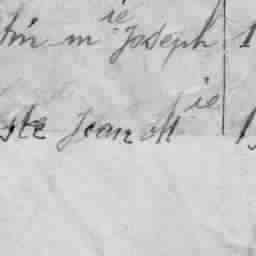 tin m ie Joseph 1
ste Jean M ie 1